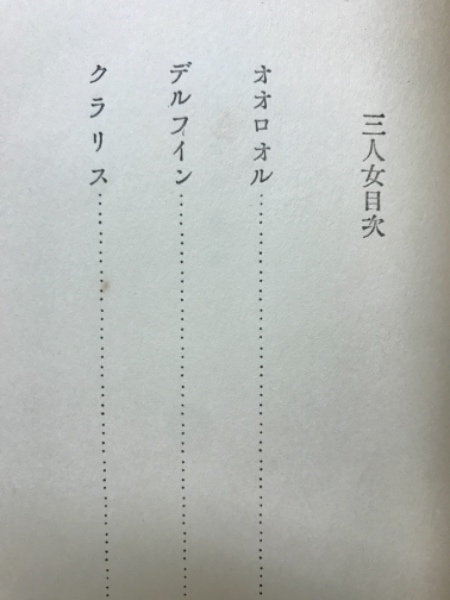 三人女目次
オオロオル……………………………
デルフイン……………………………
クラリス………………………………